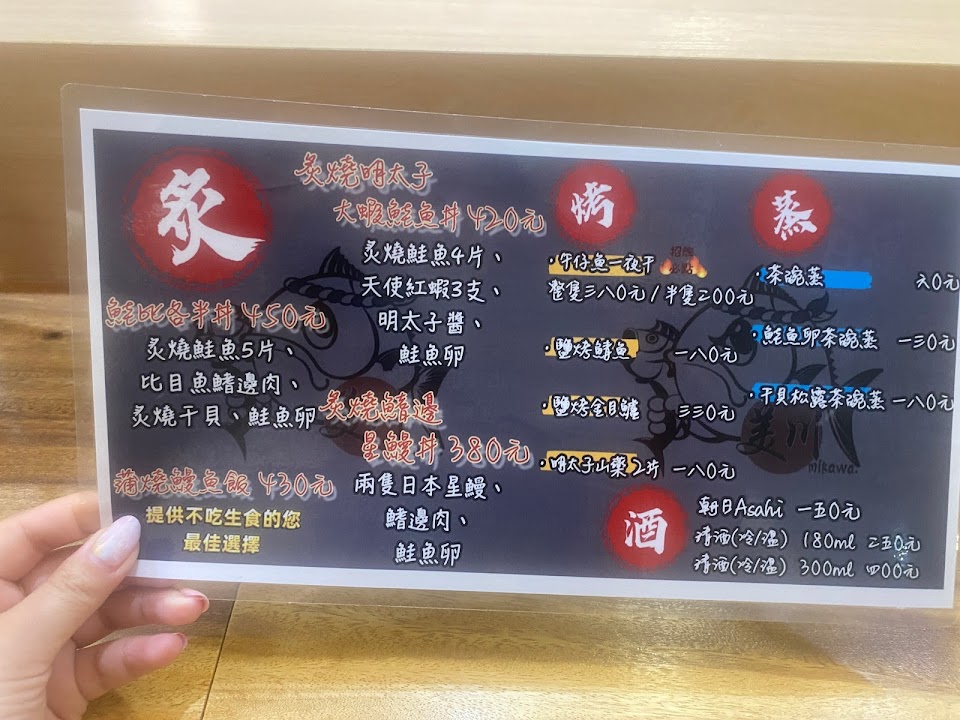 炙
鮭比各半丼 450元
炙燒鮭魚5片、
比目魚鰭邊肉、
炙燒干貝、鮭魚卵
蒲燒鰻魚飯 430元
提供不吃生食的您
最佳選擇
炙燒明太子
大蝦鮭魚丼 420元
炙燒鮭魚4片、
天使紅蝦3支、
明太子醬、
鮭魚卵
炙燒鰭邊
星鰻丼 380元
兩隻日本星鰻、
鰭邊肉、
鮭魚卵
烤
·午仔魚一夜干 招牌必點
整隻三八0元/半隻二00元
·鹽烤鯖魚 一八0元
·鹽烤金目鱸 三三0元
·明太子山藥2片 一八0元
蒸
·茶碗蒸 六0元
·鮭魚卵茶碗蒸 一三0元
·干貝松露茶碗蒸 一八0元
美川
mikawa.
酒
朝日Asahi 一五0元
清酒(冷/溫) 180ml 二五0元
清酒(冷/溫) 300ml 四00元